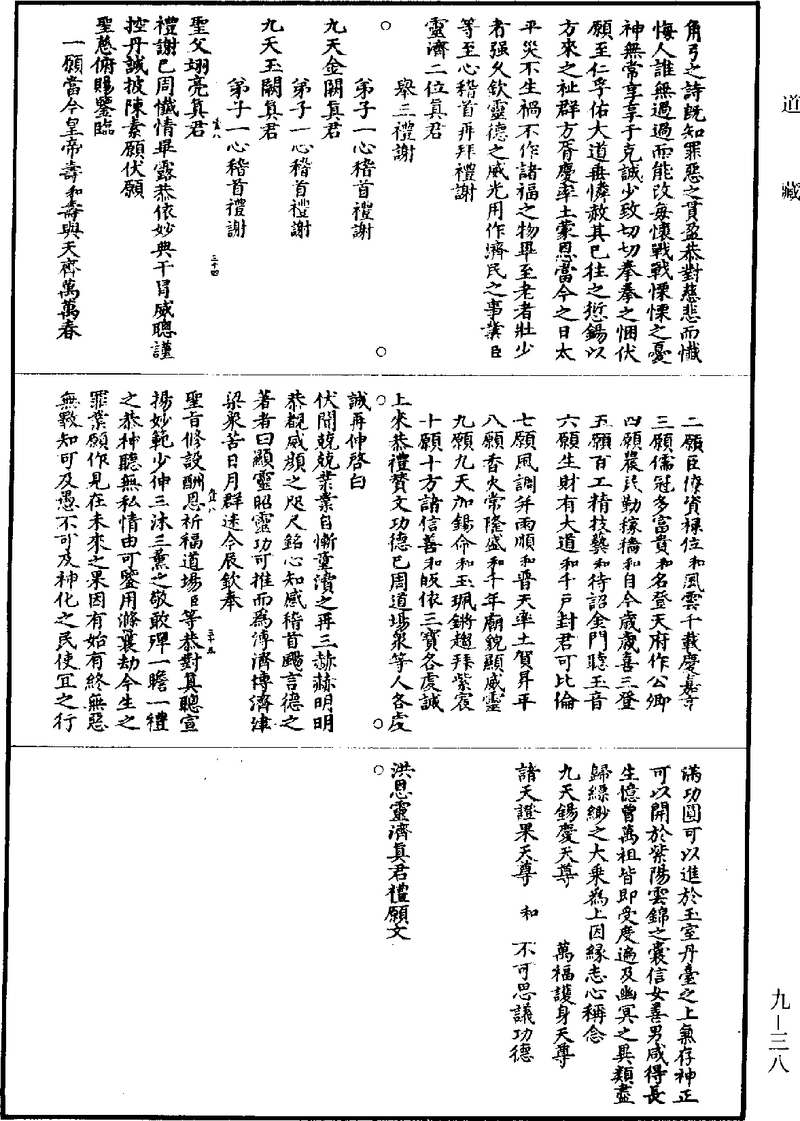 道藏
角弓之詩旣知罪惡之貫盈恭對慈悲而懺
悔人誰無過過而能改每懷戰戰慄慄之憂
神無常享享于克誠少致切切拳拳之悃伏
願至仁孚佑大道垂憐赦其已往之愆錫以
方來之祉群方胥慶率土蒙恩當今之日太
平災不生禍不作諸福之物畢至老者壯少
者强久欽靈德之威光用作濟民之事業臣
等至心稽首再拜禮謝
靈濟二位真君
舉三禮謝
○ ○
弟子一心稽首禮謝
九天金闕真君
弟子一心稽首禮謝
九天玉闕真君
弟子一心稽首禮謝
聖父翊亮真君
禮謝已周懺情畢露恭依妙典干冒威聰謹
控丹誠披陳素願伏願
聖慈俯賜鑒臨
一願當今皇帝壽和壽與天齊萬萬春
二願臣僚資祿位和風雲千載慶嘉亨
三願儒冠多富貴和名登天府作公卿
四願農民勤稼穡和自今歲歲喜三登
五願百工精技藝和待詔金門聽玉音
六願生財有大道和千戶封君可比倫
七願風調并雨順和普天率土賀昇平
八願香火常隆盛和千年廟貌顯威靈
九願九天加錫命和玉珮鏘趨拜紫宸
十願十方諸信善和皈依三寶各虔誠
上來恭禮贊文功德已周道場衆等人各虔
○ ○
誠再伸啓白
伏聞兢兢業業自慚瀆之再三赫赫明明
恭覩威顏之咫尺銘心知感稽首颺言德之
著者曰顯靈昭靈功可推而爲溥濟博濟津
梁衆苦日月群迷今辰欽奉
聖旨修設酬恩祈福道場臣等恭對真聰宣
揚妙範少伸三沐三薰之敬敢殫一瞻一禮
之恭神聽無私情由可鑒用滌曩劫今生之
罪業願作見在未來之果因有始有終無惡
無斁知可及愚不可及神化之民使宜之行
滿功圓可以進於玉室丹臺之上氣存神正
可以開於紫陽雲錦之囊信女善男咸得長
生憶曾萬祖皆即受度遍及幽冥之異類盡
歸縹緲之大乘爲上因緣志心稱念
九天錫慶天尊 萬福護身天尊
諸天證果天尊 和 不可思議功德
○
洪恩靈濟真君禮願文
九－三八